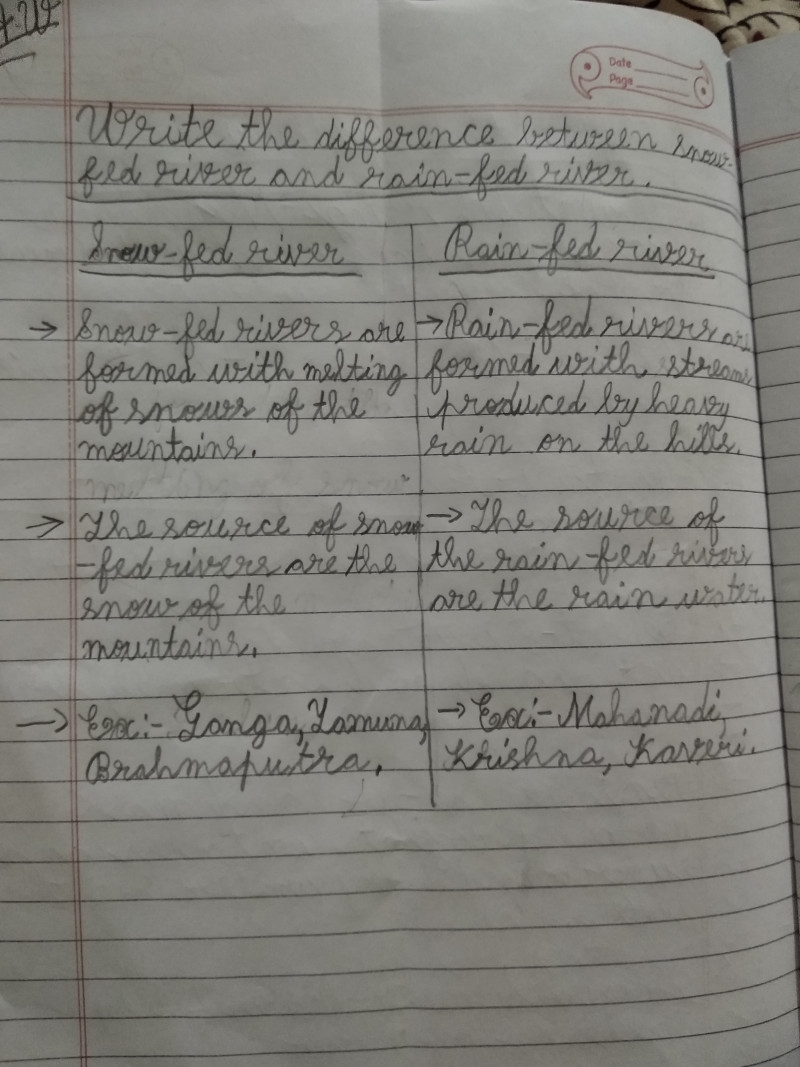 Date
Page
Write the difference between snow-
fed river and rain-fed river.
Snow-fed river
Rain-fed river
→ Snow-fed rivers are
formed with melting
of snows of the
mountains.
→ Rain-fed rivers are
formed with streams
produced by heavy
rain on the hills.
→ The source of snow
-fed rivers are the
snow of the
mountains.
→ The source of
the rain-fed rivers
are the rain water.
→ Ex:- Ganga, Yamuna,
Brahmaputra.
→ Ex:- Mahanadi,
Krishna, Kaveri.